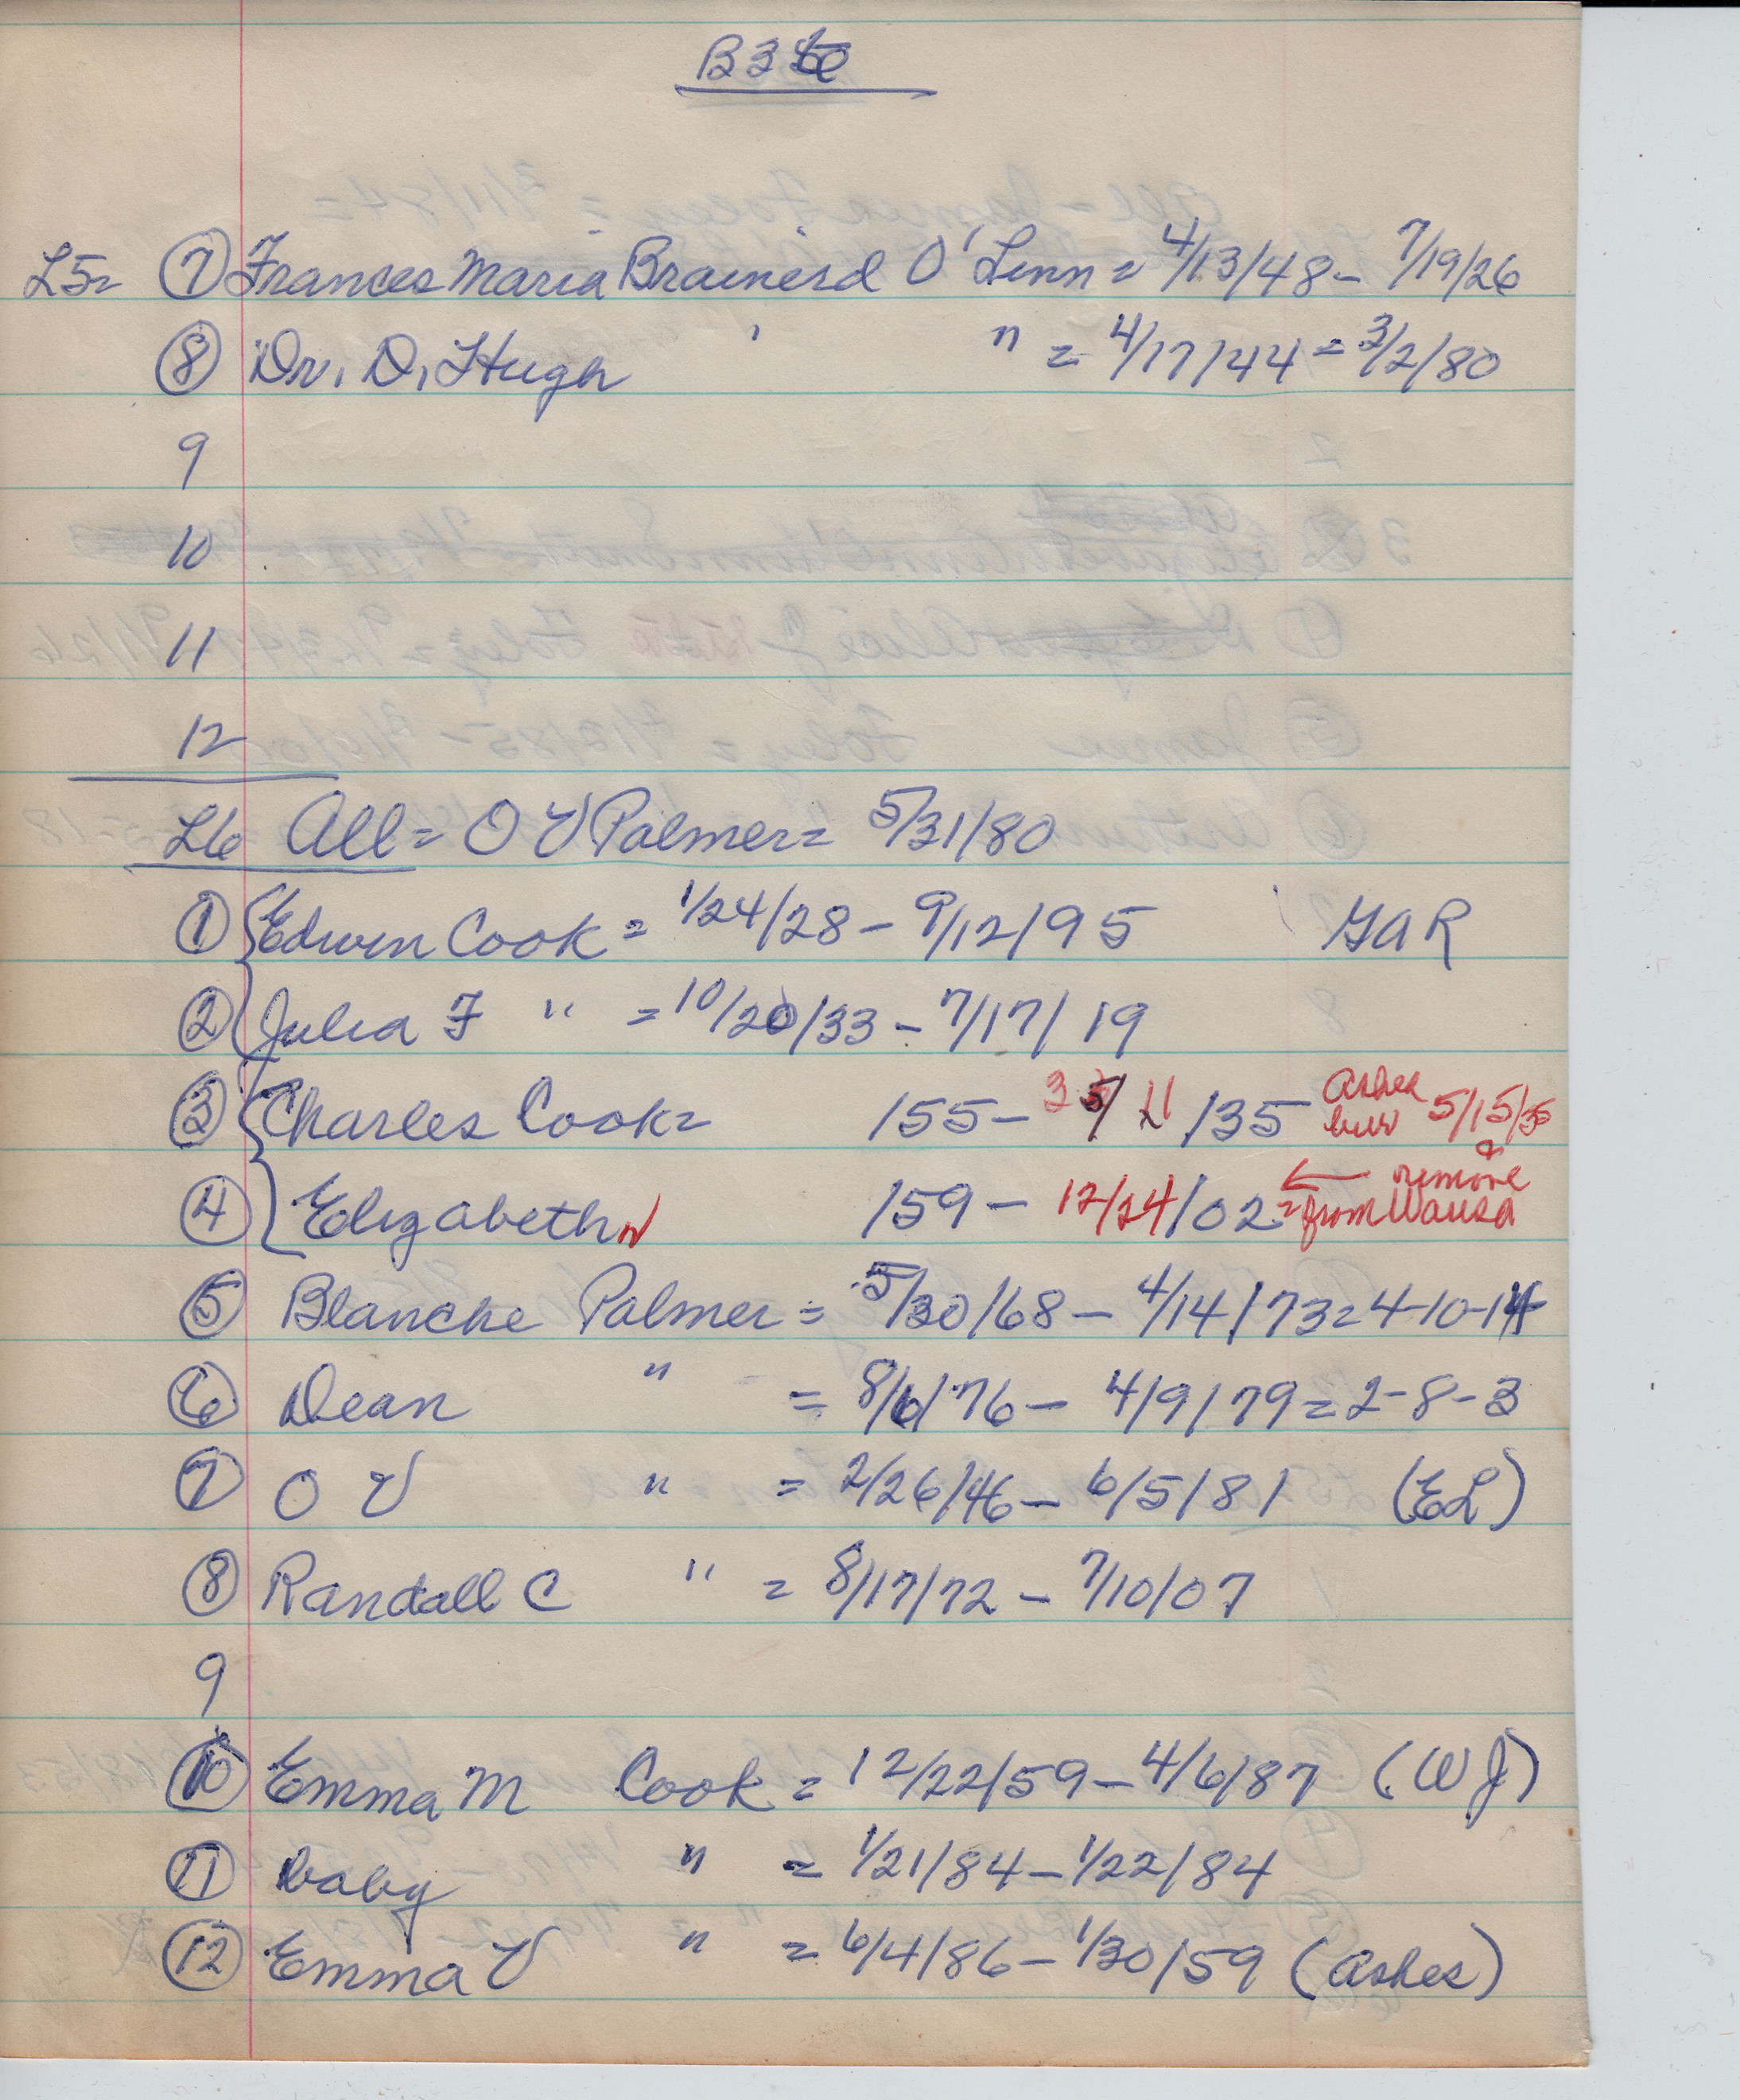 B 3
L5= 7 Frances Maria Brainerd O'Linn = 4/13/48 - 7/19/26
8 Dr. D. Hugh ' " = 4/17/44 = 3/2/80
9
10
11
12
L6 All = O V Palmer = 5/31/80
1 Edwin Cook = 1/24/28 - 9/12/95 GAR
2 Julia F " = 10/20/33 - 7/17/19
3 Charles Cook = /55 - 3 /11 /35 Ashes bur 5/15/35
4 Elizabeth /59 - 12/24/02 = ← & remove from Wausa
5 Blanche Palmer = 5/30/68 - 4/14/73 = 4-10-14
6 Dean " = 8/6/76 - 4/9/79 = 2-8-3
7 O V " = 2/26/46 - 6/5/81 (EL)
8 Randall C " = 8/17/72 - 7/10/07
9
10 Emma M Cook = 12/22/59 - 4/6/87 (WJ)
11 baby " = 1/21/84 - 1/22/84
12 Emma V " = 6/4/86 - 1/30/59 (Ashes)